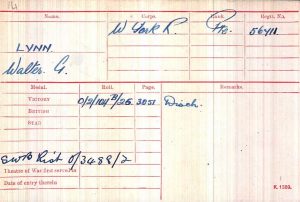 Name. Corps. Rank. Regtl. No.
LYNN. W York R. Pte. 56411
Walter. G.
Medal. Roll. Page. Remarks.
VICTORY O/2/104 B/26 3051 Disch.
BRITISH
STAR
SWB List O/3488/2
Theatre of War first served in
Date of entry therein
K. 1380.